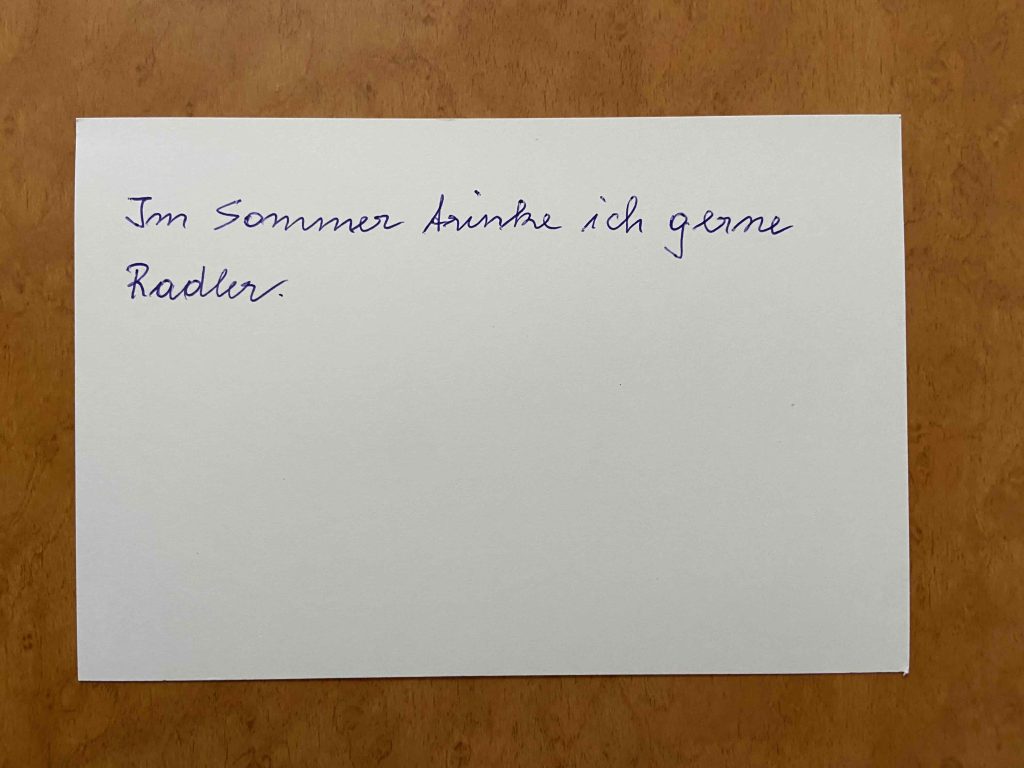 Im Sommer trinke ich gerne
Radler.